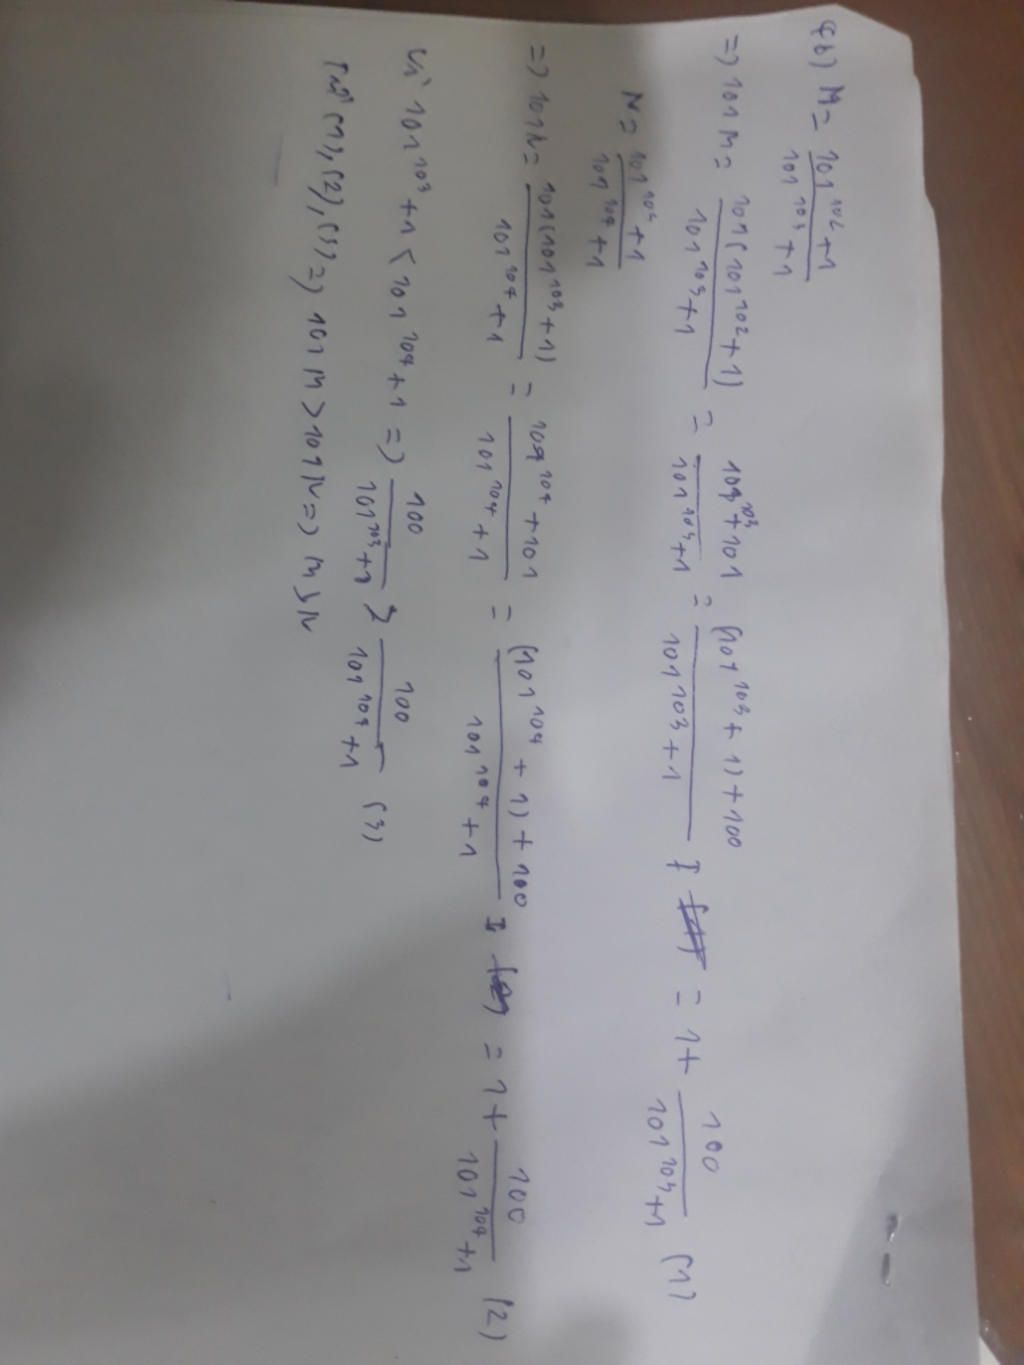 4b) M = 101^102 + 1 / 101^103 + 1
=> 101M = 101(101^102 + 1) / 101^103 + 1 = 101^103 + 101 / 101^103 + 1 = (101^103 + 1) + 100 / 101^103 + 1 = 1 + 100 / 101^103 + 1 (1)
N = 101^103 + 1 / 101^104 + 1
=> 101N = 101(101^103 + 1) / 101^104 + 1 = 101^104 + 101 / 101^104 + 1 = (101^104 + 1) + 100 / 101^104 + 1 = 1 + 100 / 101^104 + 1 (2)
Vì 101^103 + 1 < 101^104 + 1 => 100 / 101^103 + 1 > 100 / 101^104 + 1 (3)
Từ (1), (2), (3) => 101M > 101N => M > N